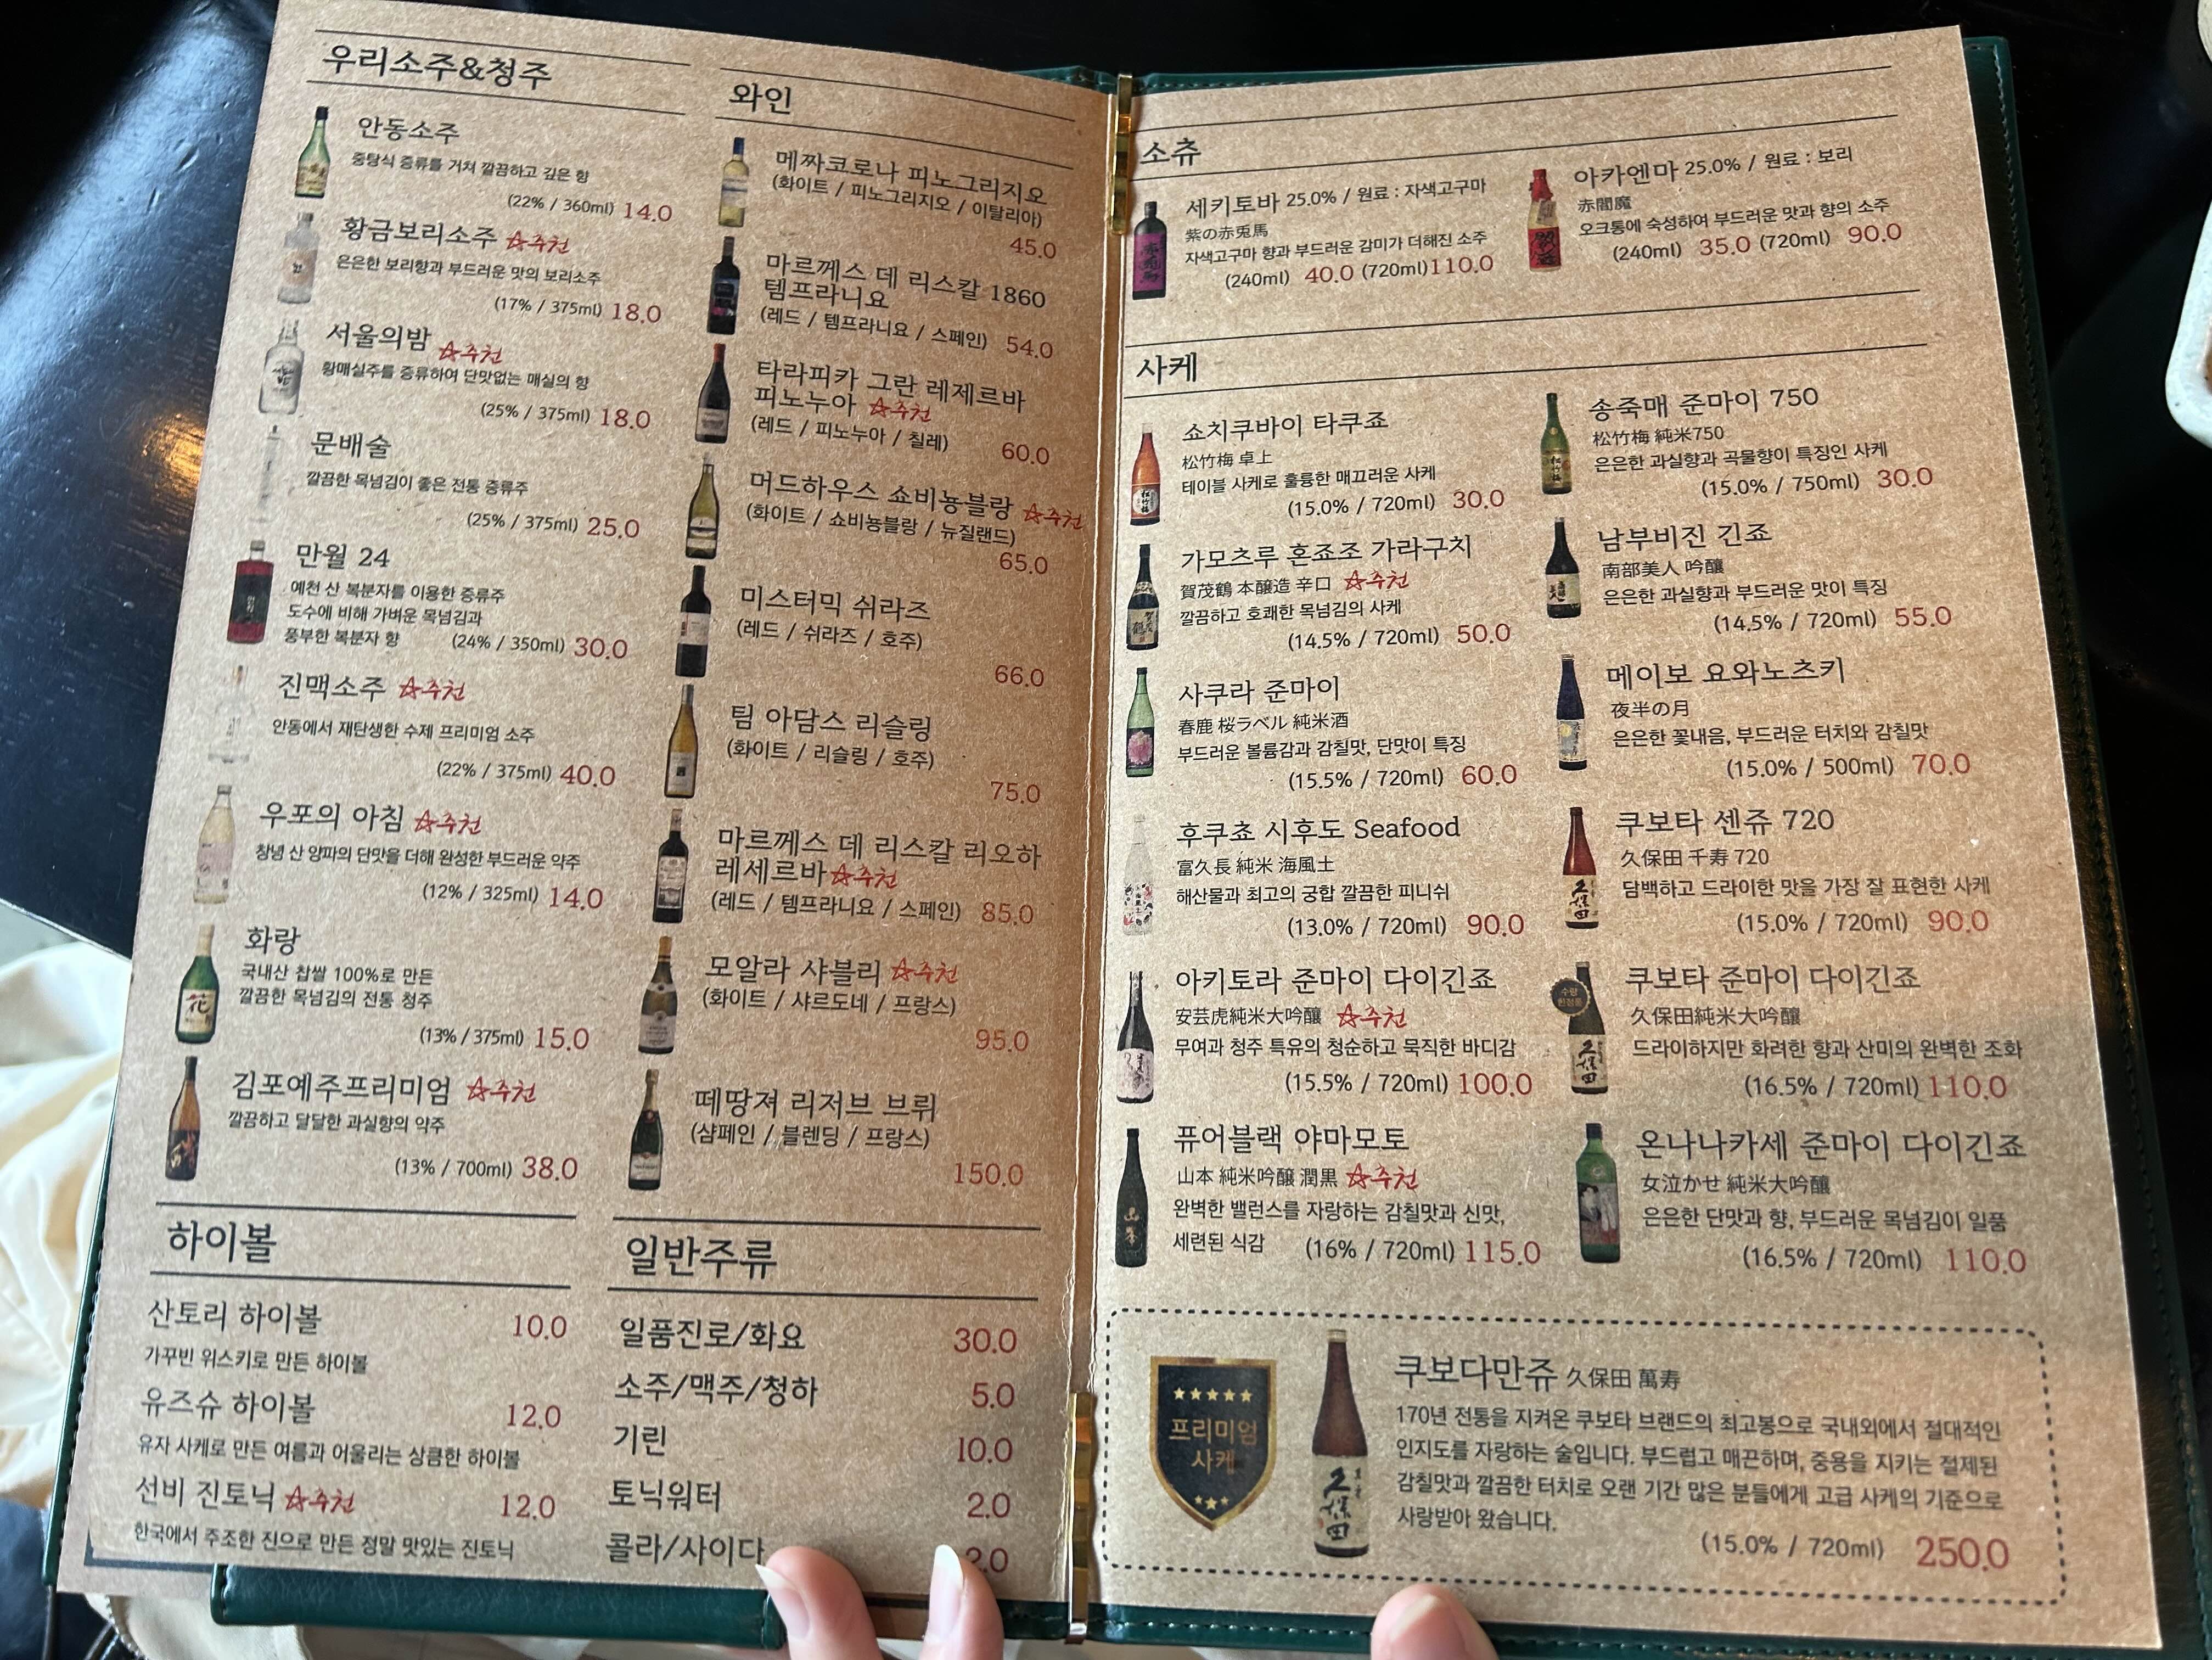 우리소주&청주
안동소주
중탕식 증류를 거쳐 깔끔하고 깊은 향
(22% / 360ml) 14.0
황금보리소주 ☆추천
은은한 보리향과 부드러운 맛의 보리소주
(17% / 375ml) 18.0
서울의밤 ☆추천
황매실주를 증류하여 단맛없는 매실의 향
(25% / 375ml) 18.0
문배술
깔끔한 목넘김이 좋은 전통 증류주
(25% / 375ml) 25.0
만월 24
예천 산 복분자를 이용한 증류주
도수에 비해 가벼운 목넘김과
풍부한 복분자 향 (24% / 350ml) 30.0
진맥소주 ☆추천
안동에서 재탄생한 수제 프리미엄 소주
(22% / 375ml) 40.0
우포의 아침 ☆추천
창녕 산 양파의 단맛을 더해 완성한 부드러운 약주
(12% / 325ml) 14.0
화랑
국내산 찹쌀 100%로 만든
깔끔한 목넘김의 전통 청주
(13% / 375ml) 15.0
김포예주프리미엄 ☆추천
깔끔하고 달달한 과실향의 약주
(13% / 700ml) 38.0
하이볼
산토리 하이볼 10.0
가꾸빈 위스키로 만든 하이볼
유즈슈 하이볼 12.0
유자 사케로 만든 여름과 어울리는 상큼한 하이볼
선비 진토닉 ☆추천 12.0
한국에서 주조한 진으로 만든 정말 맛있는 진토닉
와인
메짜코로나 피노그리지오
(화이트 / 피노그리지오 / 이탈리아)
45.0
마르께스 데 리스칼 1860
템프라니요
(레드 / 템프라니요 / 스페인) 54.0
타라피카 그란 레제르바
피노누아 ☆추천
(레드 / 피노누아 / 칠레) 60.0
머드하우스 쇼비뇽블랑 ☆추천
(화이트 / 쇼비뇽블랑 / 뉴질랜드)
65.0
미스터믹 쉬라즈
(레드 / 쉬라즈 / 호주)
66.0
팀 아담스 리슬링
(화이트 / 리슬링 / 호주)
75.0
마르께스 데 리스칼 리오하
레세르바 ☆추천
(레드 / 템프라니요 / 스페인) 85.0
모알라 샤블리 ☆추천
(화이트 / 샤르도네 / 프랑스)
95.0
떼땅져 리저브 브뤼
(샴페인 / 블렌딩 / 프랑스)
150.0
일반주류
일품진로/화요 30.0
소주/맥주/청하 5.0
기린 10.0
토닉워터 2.0
콜라/사이다 2.0
소츄
세키토바 25.0% / 원료 : 자색고구마
紫の赤兎馬
자색고구마 향과 부드러운 감미가 더해진 소주
(240ml) 40.0 (720ml) 110.0
아카엔마 25.0% / 원료 : 보리
赤閻魔
오크통에 숙성하여 부드러운 맛과 향의 소주
(240ml) 35.0 (720ml) 90.0
사케
쇼치쿠바이 타쿠죠
松竹梅 卓上
테이블 사케로 훌륭한 매끄러운 사케
(15.0% / 720ml) 30.0
가모츠루 혼죠조 가라구치
賀茂鶴 本醸造 辛口 ☆추천
깔끔하고 호쾌한 목넘김의 사케
(14.5% / 720ml) 50.0
사쿠라 준마이
春鹿 桜ラベル 純米酒
부드러운 볼륨감과 감칠맛, 단맛이 특징
(15.5% / 720ml) 60.0
후쿠쵸 시후도 Seafood
富久長 純米 海風土
해산물과 최고의 궁합 깔끔한 피니쉬
(13.0% / 720ml) 90.0
아키토라 준마이 다이긴죠
安芸虎純米大吟醸 ☆추천
무여과 청주 특유의 청순하고 묵직한 바디감
(15.5% / 720ml) 100.0
퓨어블랙 야마모토
山本 純米吟醸 潤黒 ☆추천
완벽한 밸런스를 자랑하는 감칠맛과 신맛,
세련된 식감 (16% / 720ml) 115.0
송죽매 준마이 750
松竹梅 純米750
은은한 과실향과 곡물향이 특징인 사케
(15.0% / 750ml) 30.0
남부비진 긴죠
南部美人 吟醸
은은한 과실향과 부드러운 맛이 특징
(14.5% / 720ml) 55.0
메이보 요와노츠키
夜半の月
은은한 꽃내음, 부드러운 터치와 감칠맛
(15.0% / 500ml) 70.0
쿠보타 센쥬 720
久保田 千寿 720
담백하고 드라이한 맛을 가장 잘 표현한 사케
(15.0% / 720ml) 90.0
수량
한정품
쿠보타 준마이 다이긴죠
久保田純米大吟醸
드라이하지만 화려한 향과 산미의 완벽한 조화
(16.5% / 720ml) 110.0
온나나카세 준마이 다이긴죠
女泣かせ 純米大吟醸
은은한 단맛과 향, 부드러운 목넘김이 일품
(16.5% / 720ml) 110.0
프리미엄
사케
쿠보다만쥬 久保田 萬寿
170년 전통을 지켜온 쿠보타 브랜드의 최고봉으로 국내외에서 절대적인
인지도를 자랑하는 술입니다. 부드럽고 매끈하며, 중용을 지키는 절제된
감칠맛과 깔끔한 터치로 오랜 기간 많은 분들에게 고급 사케의 기준으로
사랑받아 왔습니다.
(15.0% / 720ml) 250.0